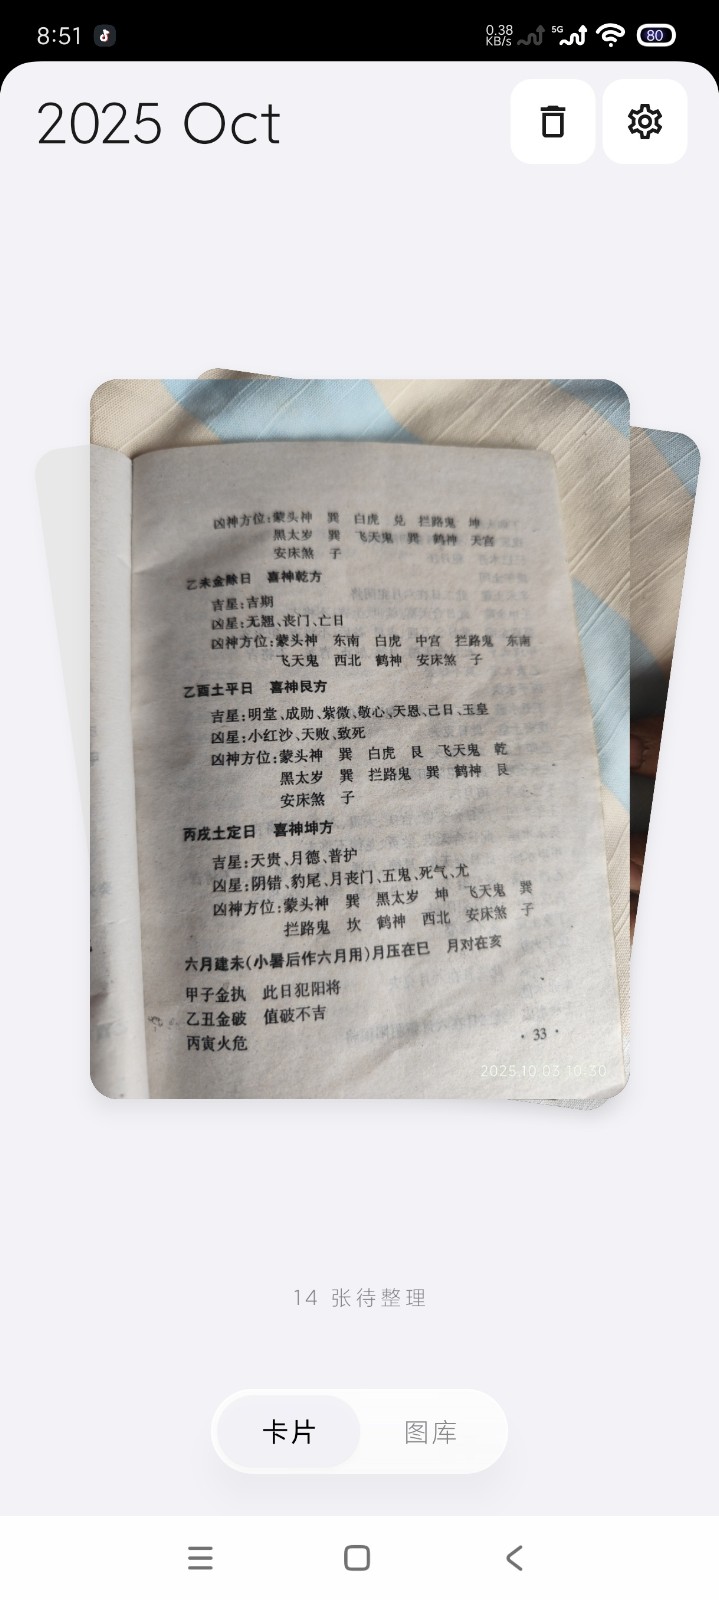 8:51
0.38
KB/s
5G
80
2025 Oct
凶神方位:蒙头神 巽 白虎 兑 拦路鬼 坤
黑太岁 巽 飞天鬼 巽 鹤神 天宫
安床煞 子
乙未金除日 喜神乾方
吉星:吉期
凶星:无翘、丧门、亡日
凶神方位:蒙头神 东南 白虎 中宫 拦路鬼 东南
飞天鬼 西北 鹤神 安床煞 子
乙酉土平日 喜神艮方
吉星:明堂、成勋、紫微、敬心、天恩、己日、玉皇
凶星:小红沙、天败、致死
凶神方位:蒙头神 巽 白虎 艮 飞天鬼 乾
黑太岁 巽 拦路鬼 巽 鹤神 艮
安床煞 子
丙戌土定日 喜神坤方
吉星:天贵、月德、普护
凶星:阴错、豹尾、月丧门、五鬼、死气、尤
凶神方位:蒙头神 巽 黑太岁 坤 飞天鬼 巽
拦路鬼 坎 鹤神 西北 安床煞 子
六月建未(小暑后作六月用)月压在巳 月对在亥
甲子金执 此日犯阳将
乙丑金破 值破不吉
丙寅火危
·33·
2025.10.03 10:30
14 张待整理
卡片 图库